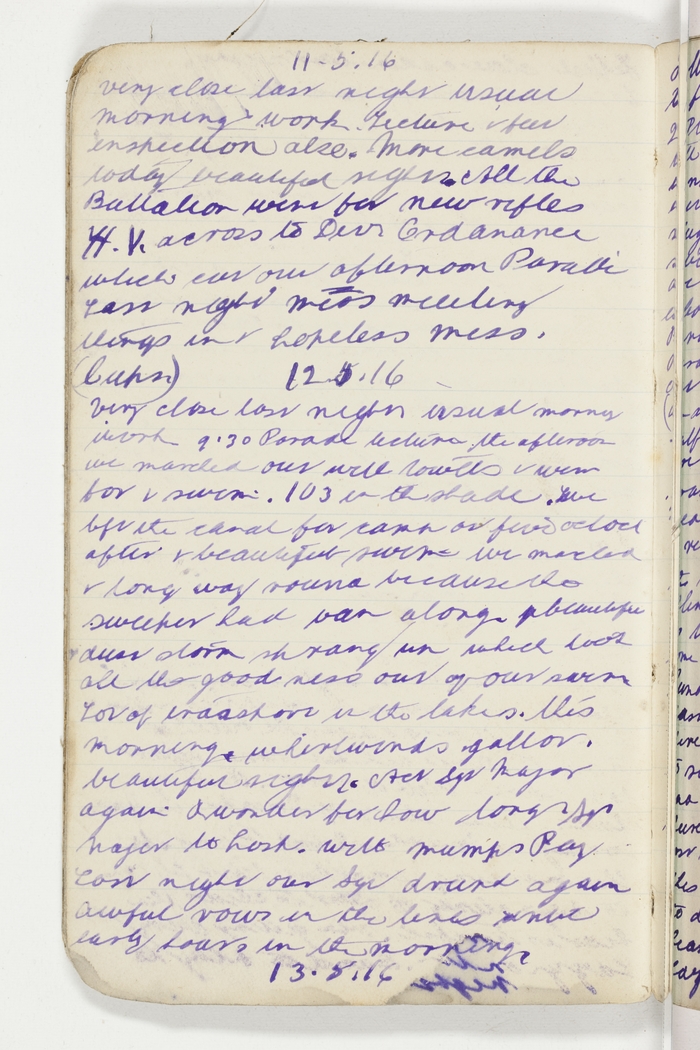 11-5.16
very close last night usual
morning work. Lecture & feet
inspection also. More camels
today beautiful sight. All the
Battalion went for new rifles
H.V. across to Divs Ordanance
which cut our afternoon Parade
Last night mess meeting
things in a hopeless mess.
12.5.16
Very close last night usual morning
work 9.30 Parade lecture, the afternoon
we marched out with towells & went
for a swim. 103 in the shade. We
left the canal for camp at five oclock
after a beautiful swim we marched
a long way round because the
sweeper had ran along a beautiful
dust storm sprang up which took
all the goodness out of our swim
Lot of in the lakes. this
morning. whirlwinds gallor.
beautiful sights. Act Sgt Major
again & wonder for how long Sgt
Major to Hosp. with mumps Pay
Last night our Sgt drunk again
awful rows in the lines until
early hours in the morning.
13.5.16